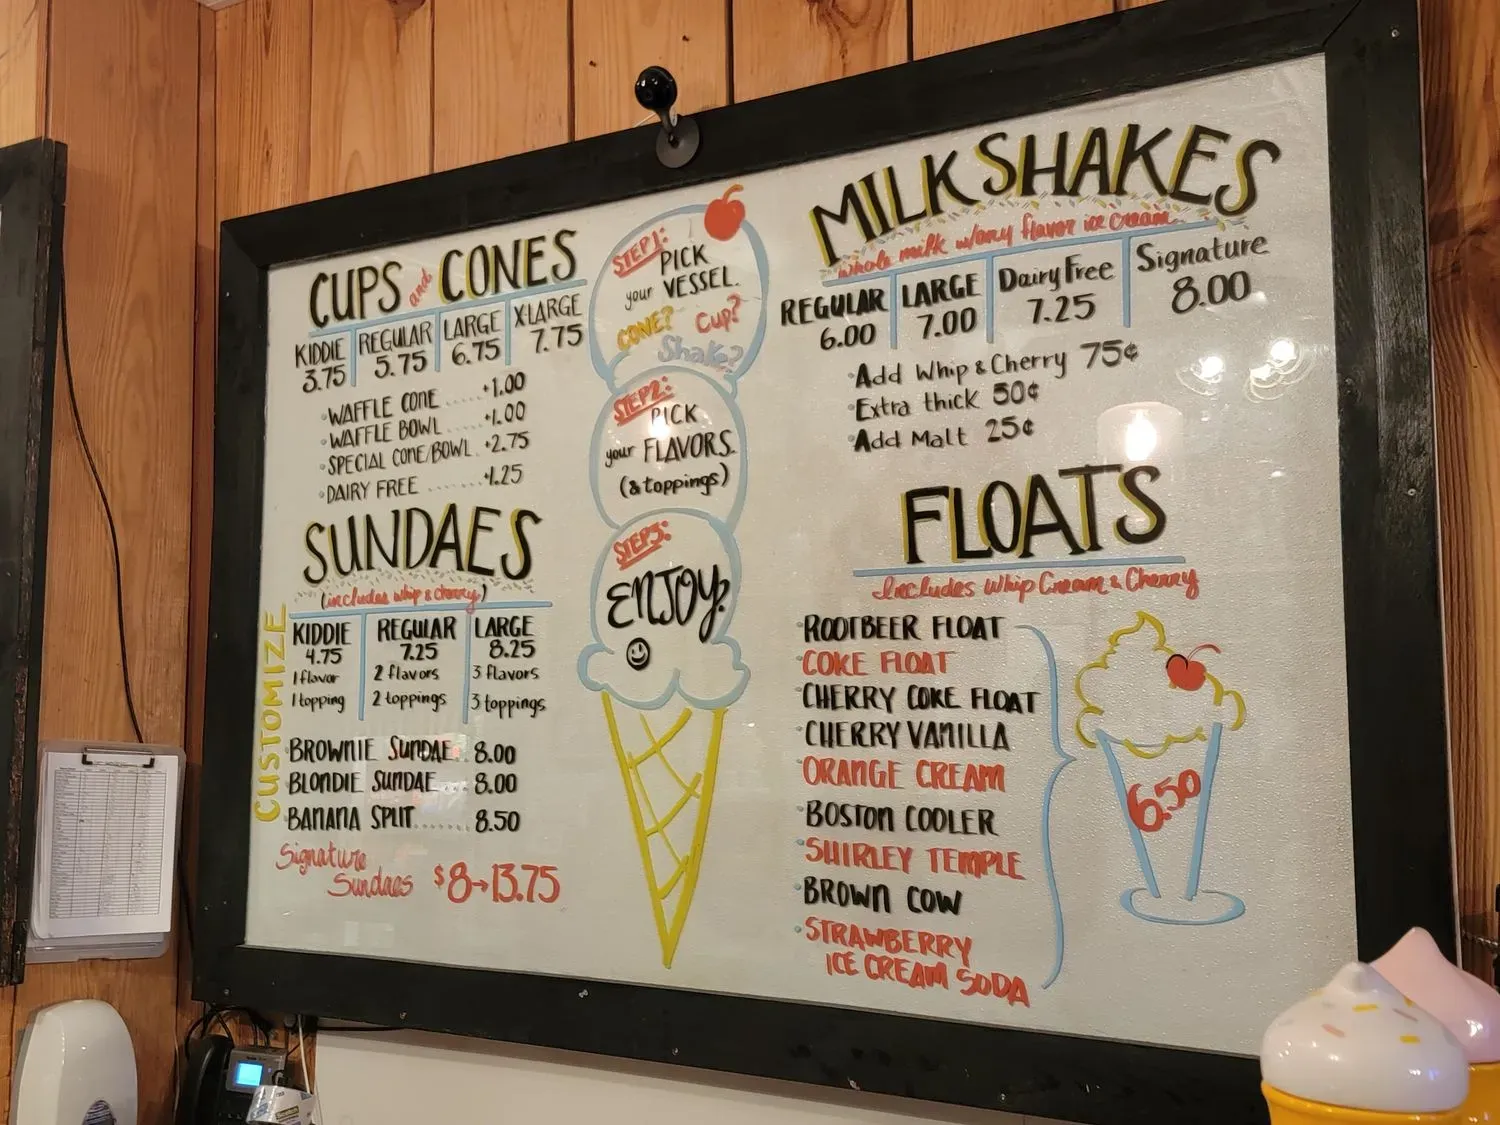 CUPS and CONES
KIDDIE REGULAR LARGE X-LARGE
3.75 5.75 6.75 7.75
·WAFFLE CONE ..... +1.00
·WAFFLE BOWL ..... +1.00
·SPECIAL CONE/BOWL. +2.75
·DAIRY FREE ........ +1.25
SUNDAES
(includes whip & cherry)
CUSTOMIZE
KIDDIE REGULAR LARGE
4.75 7.25 8.25
1 flavor 2 flavors 3 flavors
1 topping 2 toppings 3 toppings
·BROWNIE SUNDAE.. 8.00
·BLONDIE SUNDAE ... 8.00
·BANANA SPLIT....... 8.50
Signature
Sundaes $8→13.75
STEP 1:
PICK
your VESSEL.
CONE? Cup?
Shake?
STEP 2:
PICK
your FLAVORS.
(& toppings)
STEP 3:
ENJOY!
MILKSHAKES
whole milk w/any flavor ice cream
REGULAR LARGE Dairy Free Signature
6.00 7.00 7.25 8.00
·Add Whip & Cherry 75¢
·Extra thick 50¢
·Add Malt 25¢
FLOATS
Includes Whip Cream & Cherry
·ROOTBEER FLOAT
·COKE FLOAT
·CHERRY COKE FLOAT
·CHERRY VANILLA
·ORANGE CREAM
·BOSTON COOLER
·SHIRLEY TEMPLE
·BROWN COW
·STRAWBERRY
ICE CREAM SODA
6.50